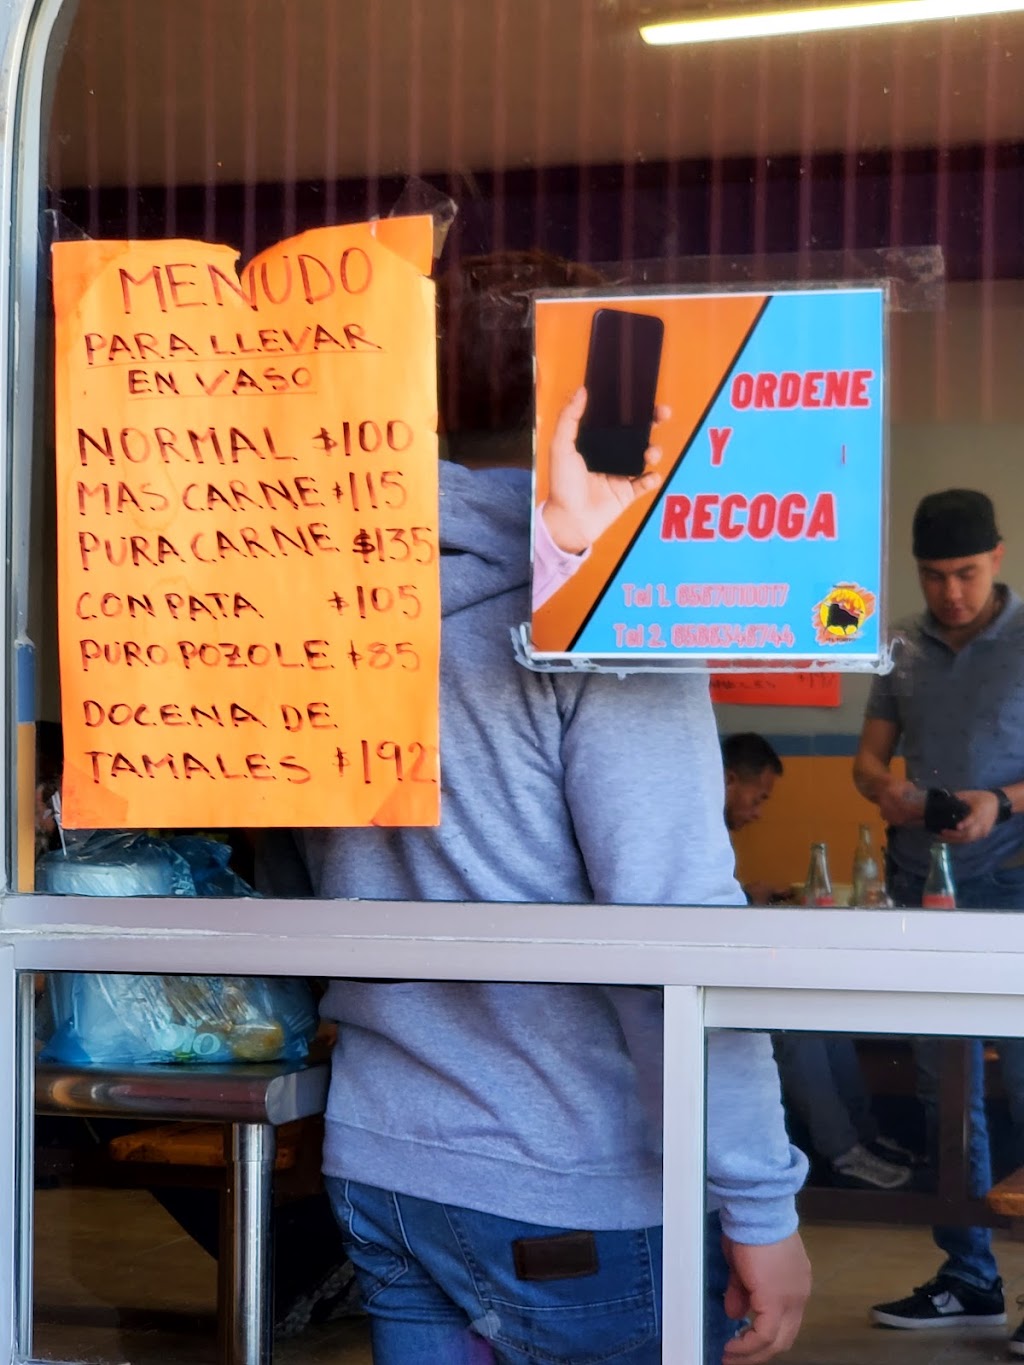 MENUDO
PARA LLEVAR
EN VASO
NORMAL $100
MAS CARNE $115
PURA CARNE $135
CON PATA $105
PURO POZOLE $85
DOCENA DE
TAMALES $192
ORDENE
Y
RECOGA
Tel 1. 6567010017
Tel 2.